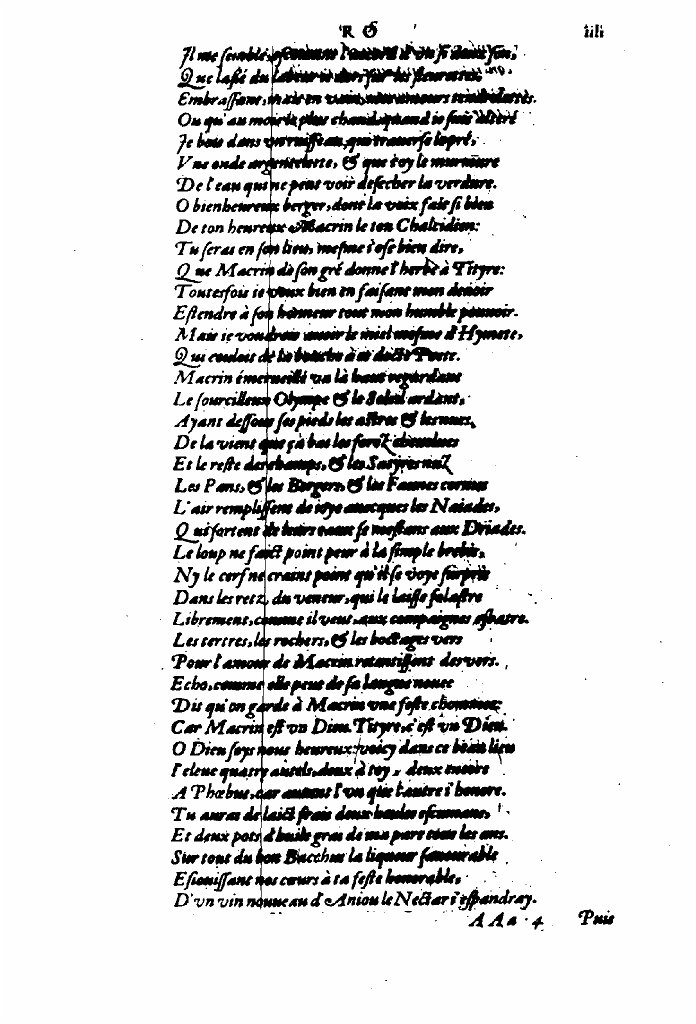 R O iiii
Il me semble,
Que lassé du labeur ie dors sur les fleurettes,
Embrassant, mais en vain,
Ou qu'au mois le plus chaud, quand ie suis alteré
Ie bois dans vn ruisseau, qui trauerse le pré,
Vne onde argentelette, & que i'oy le murmure
De l'eau qui ne peut voir desecher la verdure.
O bienheureux berger, dont la voix fait si bien
De ton heureux Macrin le ton Chalcidien:
Tu seras en son lieu, mesme i'ose bien dire,
Que Macrin de son gré donne l'herbe à Tityre:
Toutesfois ie veux bien en faisant mon deuoir
Estendre à son honneur tout mon humble pouuoir.
Mais ie voudrois auoir le miel mesme d'Hymete,
Qui couloit de la bouche à ce docte Poete.
Macrin émerueillé va là haut regardant
Le sourcilleux Olympe & le Soleil ardant,
Ayant dessous ses pieds les astres & les nues,
De la vient que çà bas les forez cheuelues
Et le reste des champs, & les Satyres nuz
Les Pans, & les Bergers, & les Faunes cornus
L'air remplissent de ioye auecques les Naiades,
Qui sortent de leurs eaux se meslans aux Driades.
Le loup ne faict point peur à la simple brebis,
Ny le cerf ne craint point qu'il se voye surpris
Dans les retz, du veneur, qui le laisse folastre
Librement, comme il veut, aux compaignes esbatre.
Les tertres, les rochers, & les boctages vers
Pour l'amour de Macrin retentissent des vers.
Echo, comme elle peut de sa langue nouee
Dit qu'on garde à Macrin vne feste
Car Macrin est vn Dieu. Tityre, c'est vn Dieu.
O Dieu soys nous heureux: voicy dans ce beau lieu
I'eleue quatre autels, deux à toy, deux encore
A Phœbus, car autant l'vn que l'autre i'honore.
Tu auras de laict frais deux boules escumans,
Et deux pots d'huile gras de ma part tous les ans.
Sur tout du bon Bacchus la liqueur fauourable
Esiouissant nos cœurs à ta feste honorable,
D'vn vin nouueau d'Aniou le Nectar i'espandray.
A A a 4 Puis